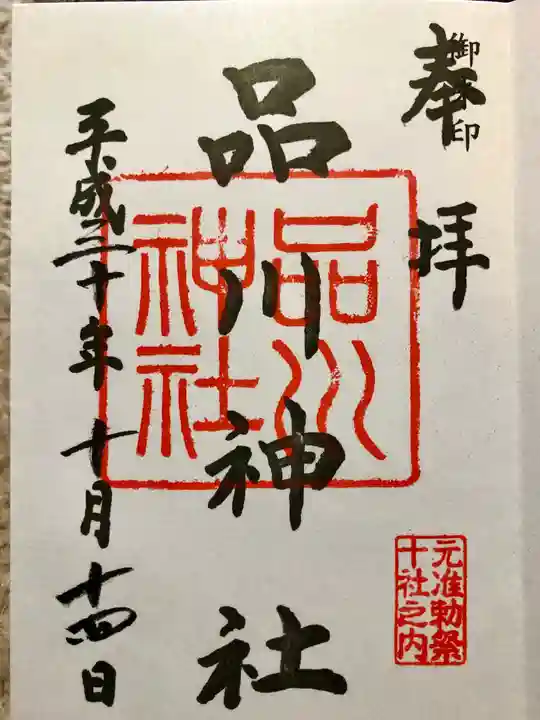 奉拝
御朱印
品川神社
品川
神社
元准勅祭
十社之内
平成三十年十月十四日